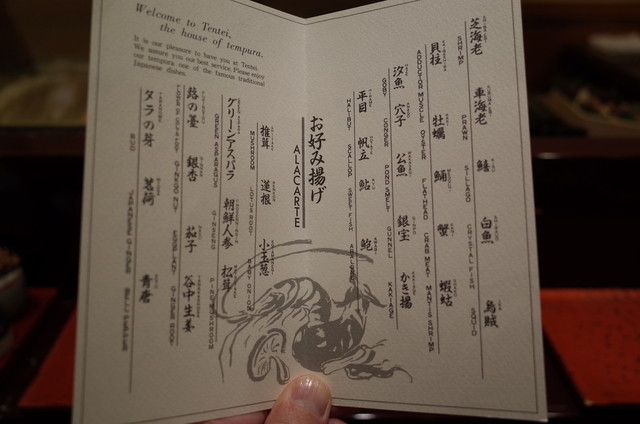 Welcome to Tentei,
the house of tempura.
It is our pleasure to have you at Tentei.
We assure you our best service. Please enjoy
our tempura one of the famous traditional
Japanese dishes.
お好み揚げ
ALACARTE
芝海老 車海老 鱚 白魚 烏賊
SHRIMP PRAWN SILLAGO CRYSTAL FISH SQUID
貝柱 牡蠣 鯒 蟹 蝦蛄
ADDUCTOR MUSCLE OYSTER FLATHEAD CRAB MEAT MANTIS SHRIMP
沙魚 穴子 公魚 銀宝 かき揚
GOBY CONGER POND SMELT GUNNEL KAKIAGE
平目 帆立 鮎 鮑
HALIBUT SCALLOP SWEET FISH
椎茸 蓮根 小玉葱
MUSHROOM LOTUS ROOT BABY ONION
グリーンアスパラ 朝鮮人参 松茸
GREEN ASPARAGUS GINSENG
蕗の薹 銀杏 茄子 谷中生姜
GINKGO NUT EGGPLANT GINGER ROOT
タラの芽 茗荷 青唐
BUD JAPANESE GINGER